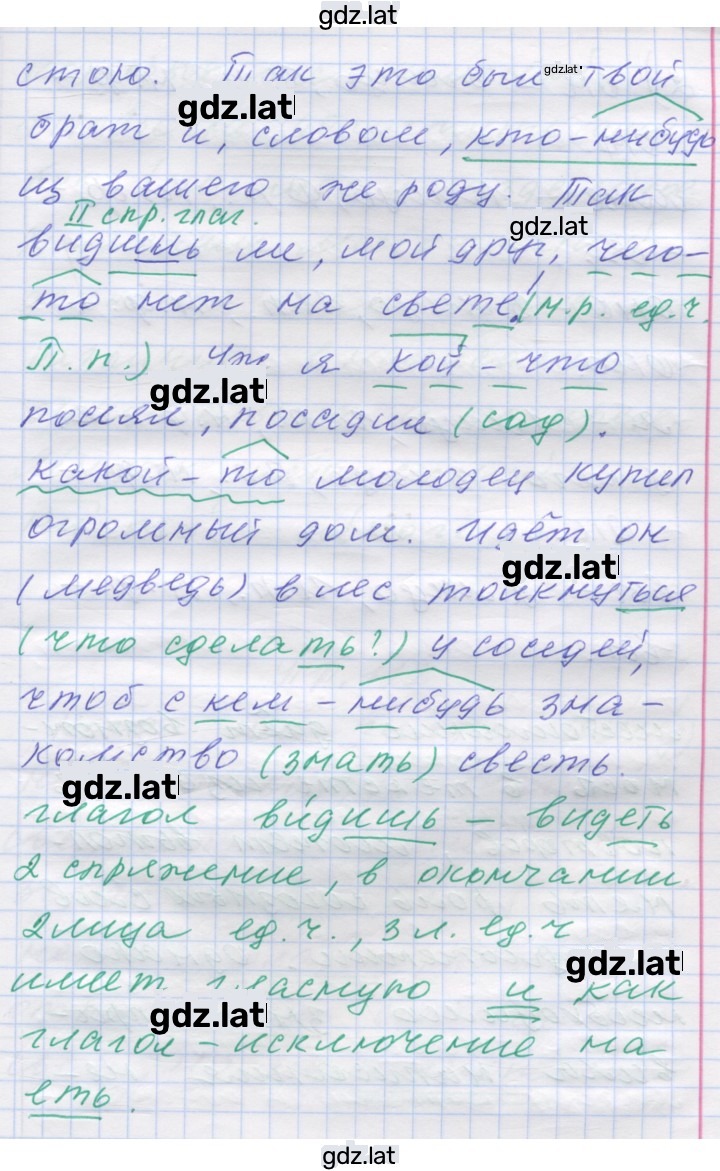 gdz.lat
столо. Так это был gdz.lat твой
gdz.lat
брат и, словом, кто-нибудь
из вашего же роду. Так
II спр. глаг.
gdz.lat
видишь ли, мой друг, чего-
то нет на свете! (м.р. ед.ч.
П.п.) Что я кой-что
gdz.lat
посеял, посадил (сад).
какой-то молодец купил
огромный дом. Идёт он
gdz.lat
(медведь) в лес толкнуться
(что сделать?) у соседей,
чтоб с кем-нибудь зна-
комство (знать) свесть.
gdz.lat
глагол ви́дишь – видеть
2 спряжение, в окончании
2 лица ед.ч., 3 л. ед.ч
gdz.lat
имеет гласную и как
gdz.lat
глагол-исключение на
еть.
gdz.lat